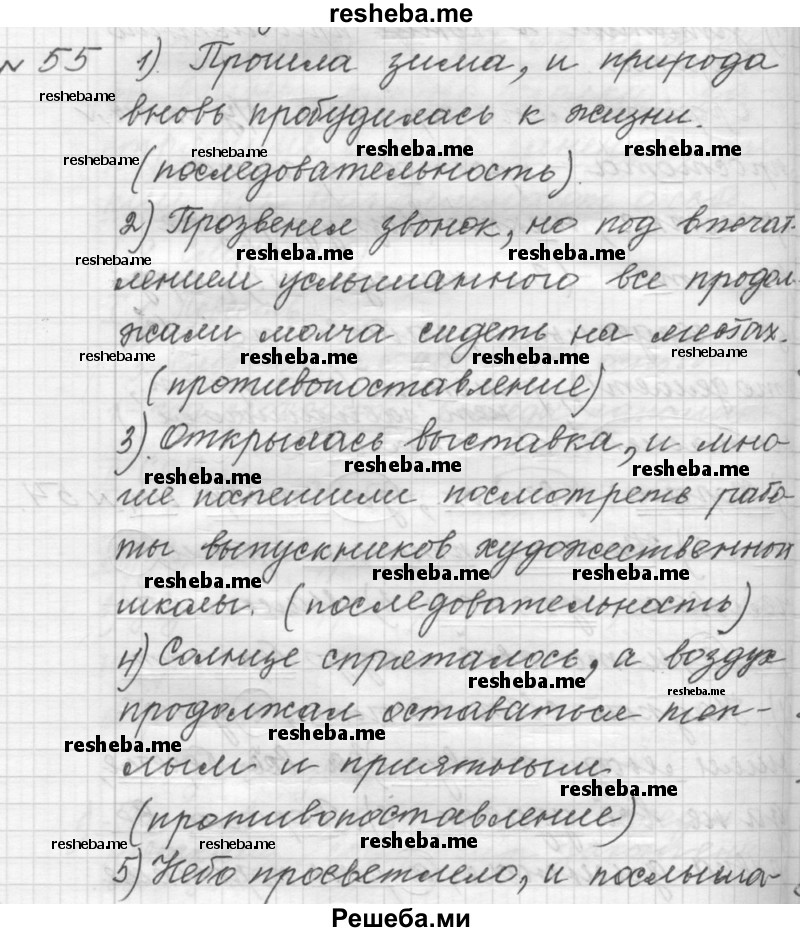 resheba.me
№ 55 1). Прошла зима, и природа
resheba.me
вновь пробудилась к жизни.
resheba.me resheba.me resheba.me resheba.me
(последовательность).
2) Прозвенел звонок, но под впечат-
resheba.me resheba.me resheba.me
лением услышанного все продол-
жали молча сидеть на местах.
resheba.me resheba.me resheba.me resheba.me
(противопоставление)
3). Открылась выставка, и мно-
resheba.me resheba.me resheba.me
гие поспешили посмотреть рабо-
ты выпускников художественной
resheba.me resheba.me resheba.me
школы. (последовательность)
4) Солнце спряталось, а воздух
resheba.me resheba.me
продолжал оставаться теп-
resheba.me resheba.me
лым и приятным
resheba.me
(противопоставление)
resheba.me resheba.me resheba.me
5) Небо просветлело, и послыша-
Решеба.ми